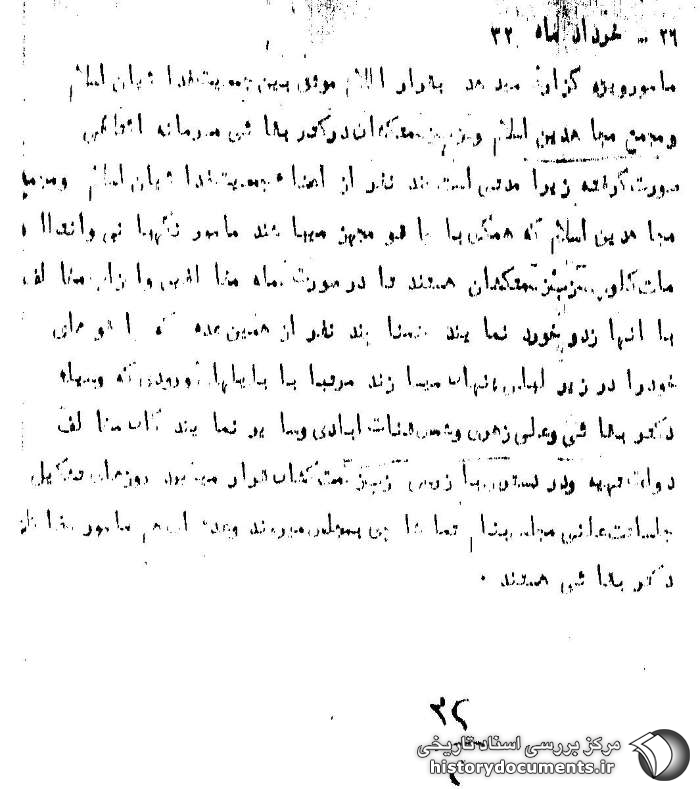 ۲۶ – خرداد ماه ۳۲
مامور ویژه گزارش میدهد بقرار اطلاع موثق بین جمعیت فدائیان اسلام
و مجمع مجاهدین اسلام و حزب زحمتکشان دکتر بقائی محرمانه ائتلافی
صورت گرفته زیرا مدتی است چند نفر از اعضاء جمعیت فدائیان اسلام و مجمع
مجاهدین اسلام که همگی با چاقو مجهز میباشند مامور نگهبانی و انتظا
مات کلوپ حزب زحمتکشان هستند تا در صورت حمله مخالفین و احزاب مخالف
با انها زدوخورد نمایند ضمنا چند نفر از همین عده که چاقوهای
خود را در زیر لباس پنهان میسازند مرتبا با بلیطهای ورودی که وسیله
دکتر بقائی و علی زهری و شمس قنات ابادی و سایر نمایندگان مخالف
دولت تهیه و در دسترس حزب زحمتکشان قرار میگیرد روزهای تشکیل
جلسات علنی مجلس بنام تماشاچی بمجلس میروند و عده ای هم مامور حفاظت
دکتر بقائی هستند .
۳۲
مرکز بررسی اسناد تاریخی
historydocuments.ir